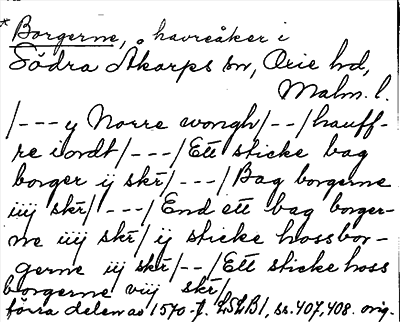 *Borgerne, havreåker i
Södra Åkarps sn, Oxie hd,
Malm. l.
/---y Norre wongh/--/hauff-
re iordt/---/Ett sticke bag
borger ij skr̄/---/Bag borgerne
iiij skr̄/---/End ett bag borger-
ne iiij skr̄/ij sticke hoss bor-
gerne iij skr̄/--/Ett sticke hoss
borgerne viij skr̄/
förra delen av 1570-t. LSLB1, ss. 407, 408. orig.